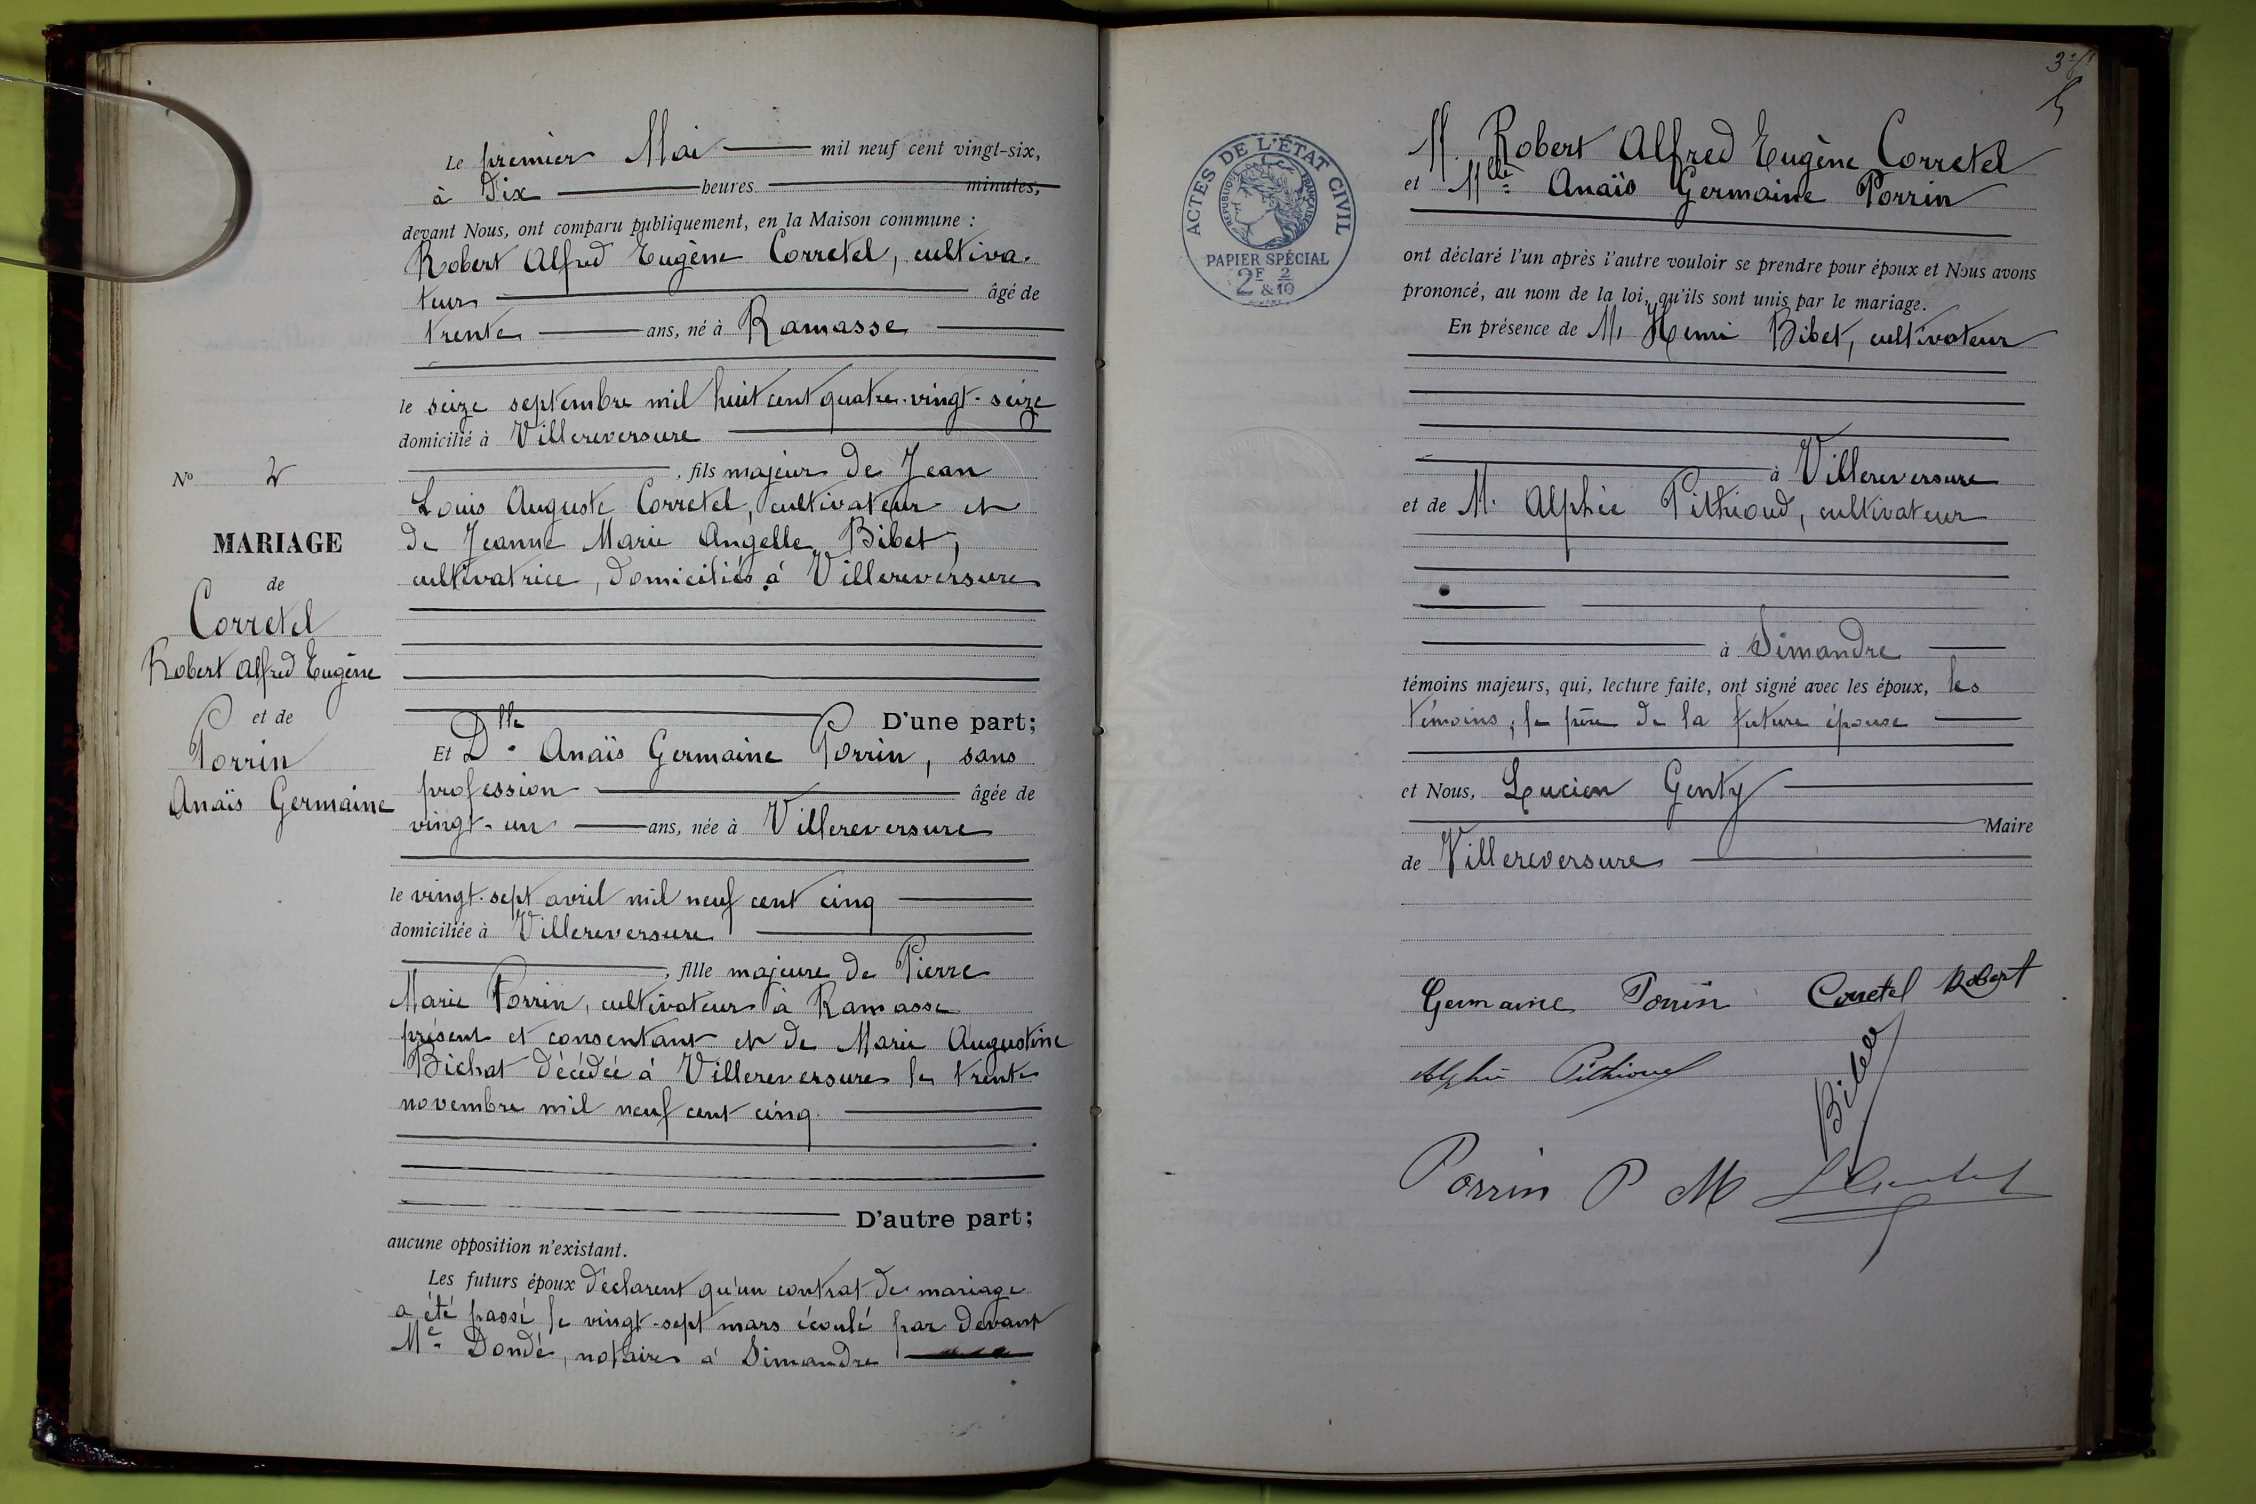 Le premier Mai mil neuf cent vingt-six,
à Dix heures minutes,
devant Nous, ont comparu publiquement, en la Maison commune :
Robert Alfred Eugène Corretel, cultiva-
teur âgé de
trente ans, né à Ramasse
le seize septembre mil huit cent quatre-vingt-seize
domicilié à Villereversure
, fils majeur de Jean
Louis Auguste Corretel, cultivateur et
de Jeanne Marie Angelle Bibet,
cultivatrice, domiciliés à Villereversure
D'une part;
Et Dlle Anaïs Germaine Porrin, sans
profession âgée de
vingt-un ans, née à Villereversure
le vingt-sept avril mil neuf cent cinq
domiciliée à Villereversure
, fille majeure de Pierre
Marie Porrin, cultivateur à Ramasse
présent et consentant et de Marie Augustine
Bichat décédée à Villereversure le trente
novembre mil neuf cent cinq.
D'autre part;
aucune opposition n'existant.
Les futurs époux déclarent qu'un contrat de mariage
a été passé le vingt-sept mars écoulé par devant
Me Dondé, notaire à Simandre
No 2
MARIAGE
de
Corretel
Robert Alfred Eugène
et de
Porrin
Anaïs Germaine
ACTES DE L'ÉTAT CIVIL
RÉPUBLIQUE FRANÇAISE
PAPIER SPÉCIAL
2F & 2/10
M. Robert Alfred Eugène Corretel
et Mlle Anaïs Germaine Porrin
ont déclaré l'un après l'autre vouloir se prendre pour époux et Nous avons
prononcé, au nom de la loi, qu'ils sont unis par le mariage.
En présence de M. Henri Bibet, cultivateur
à Villereversure
et de M. Alphée Pithioud, cultivateur
à Simandre
témoins majeurs, qui, lecture faite, ont signé avec les époux, les
témoins, le père de la future épouse
et Nous, Lucien Genty
Maire
de Villereversure
Germaine Porrin Corretel Robert
Alphée Pithioud
Bibet
Porrin P M